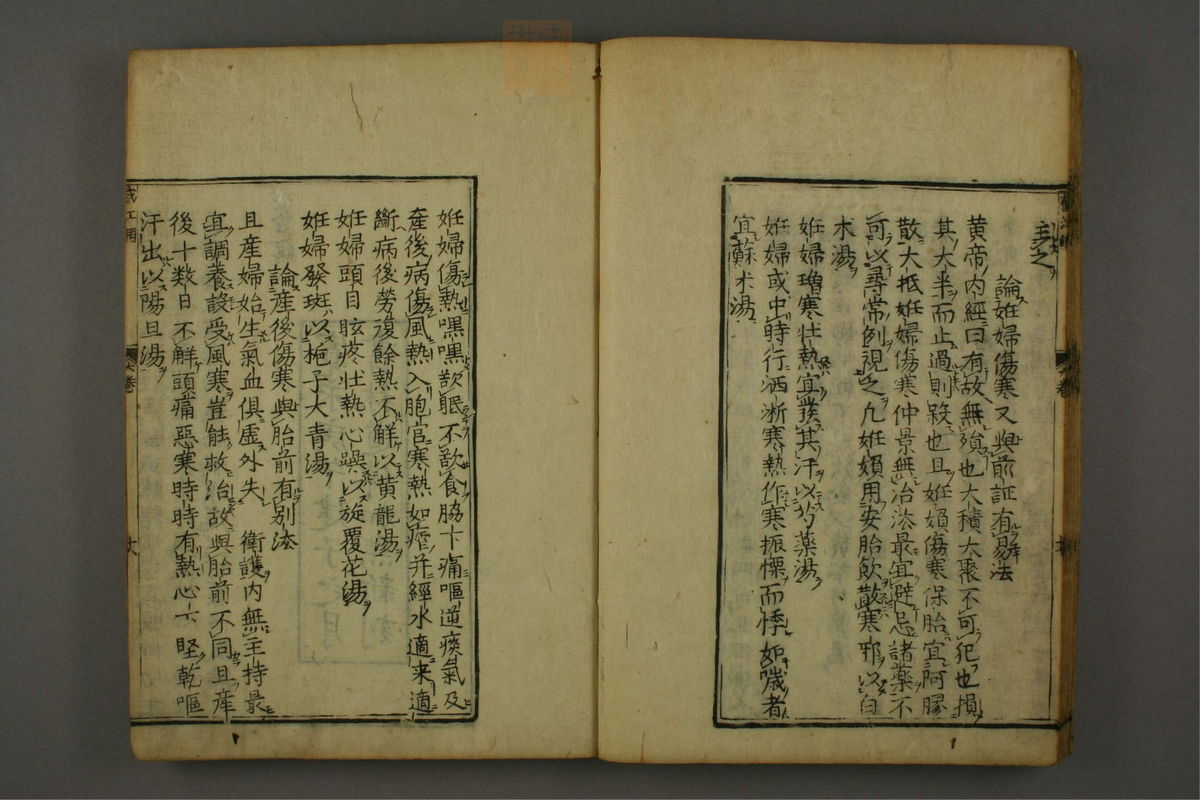 主之
論妊婦傷寒又與前証有易法
黄帝内經曰有故無殞也大積大聚不可犯也損
其大半而止過則殺也且妊娠傷寒保胎宜阿膠
散大抵妊婦傷寒仲景無治法最宜避忌諸藥不
可以尋常例視之凡妊娠用安胎飲散寒邪以白
朮湯
妊婦増寒壮熱宜發其汗以芍藥湯
妊婦或中時行洒淅寒熱作寒振慄而悸如噦者
宜蘇木湯
妊婦傷熱嘿嘿欲眠不欲食脇下痛嘔逆痰氣及
産後病傷風熱入胞官寒熱如瘧并經水適来適
斷病後勞復餘熱不解以黄龍湯
妊婦頭目眩疼壮熱心躁以旋覆花湯
妊婦發斑以栀子大青湯
論産後傷寒與胎前有别法
且産婦始生氣血俱虚外失 衛護内無主持最
宜調養設受風寒豈能救治故與胎前不同且産
後十数日不解頭痛惡寒時時有熱心下堅乾嘔
汗出以陽旦湯